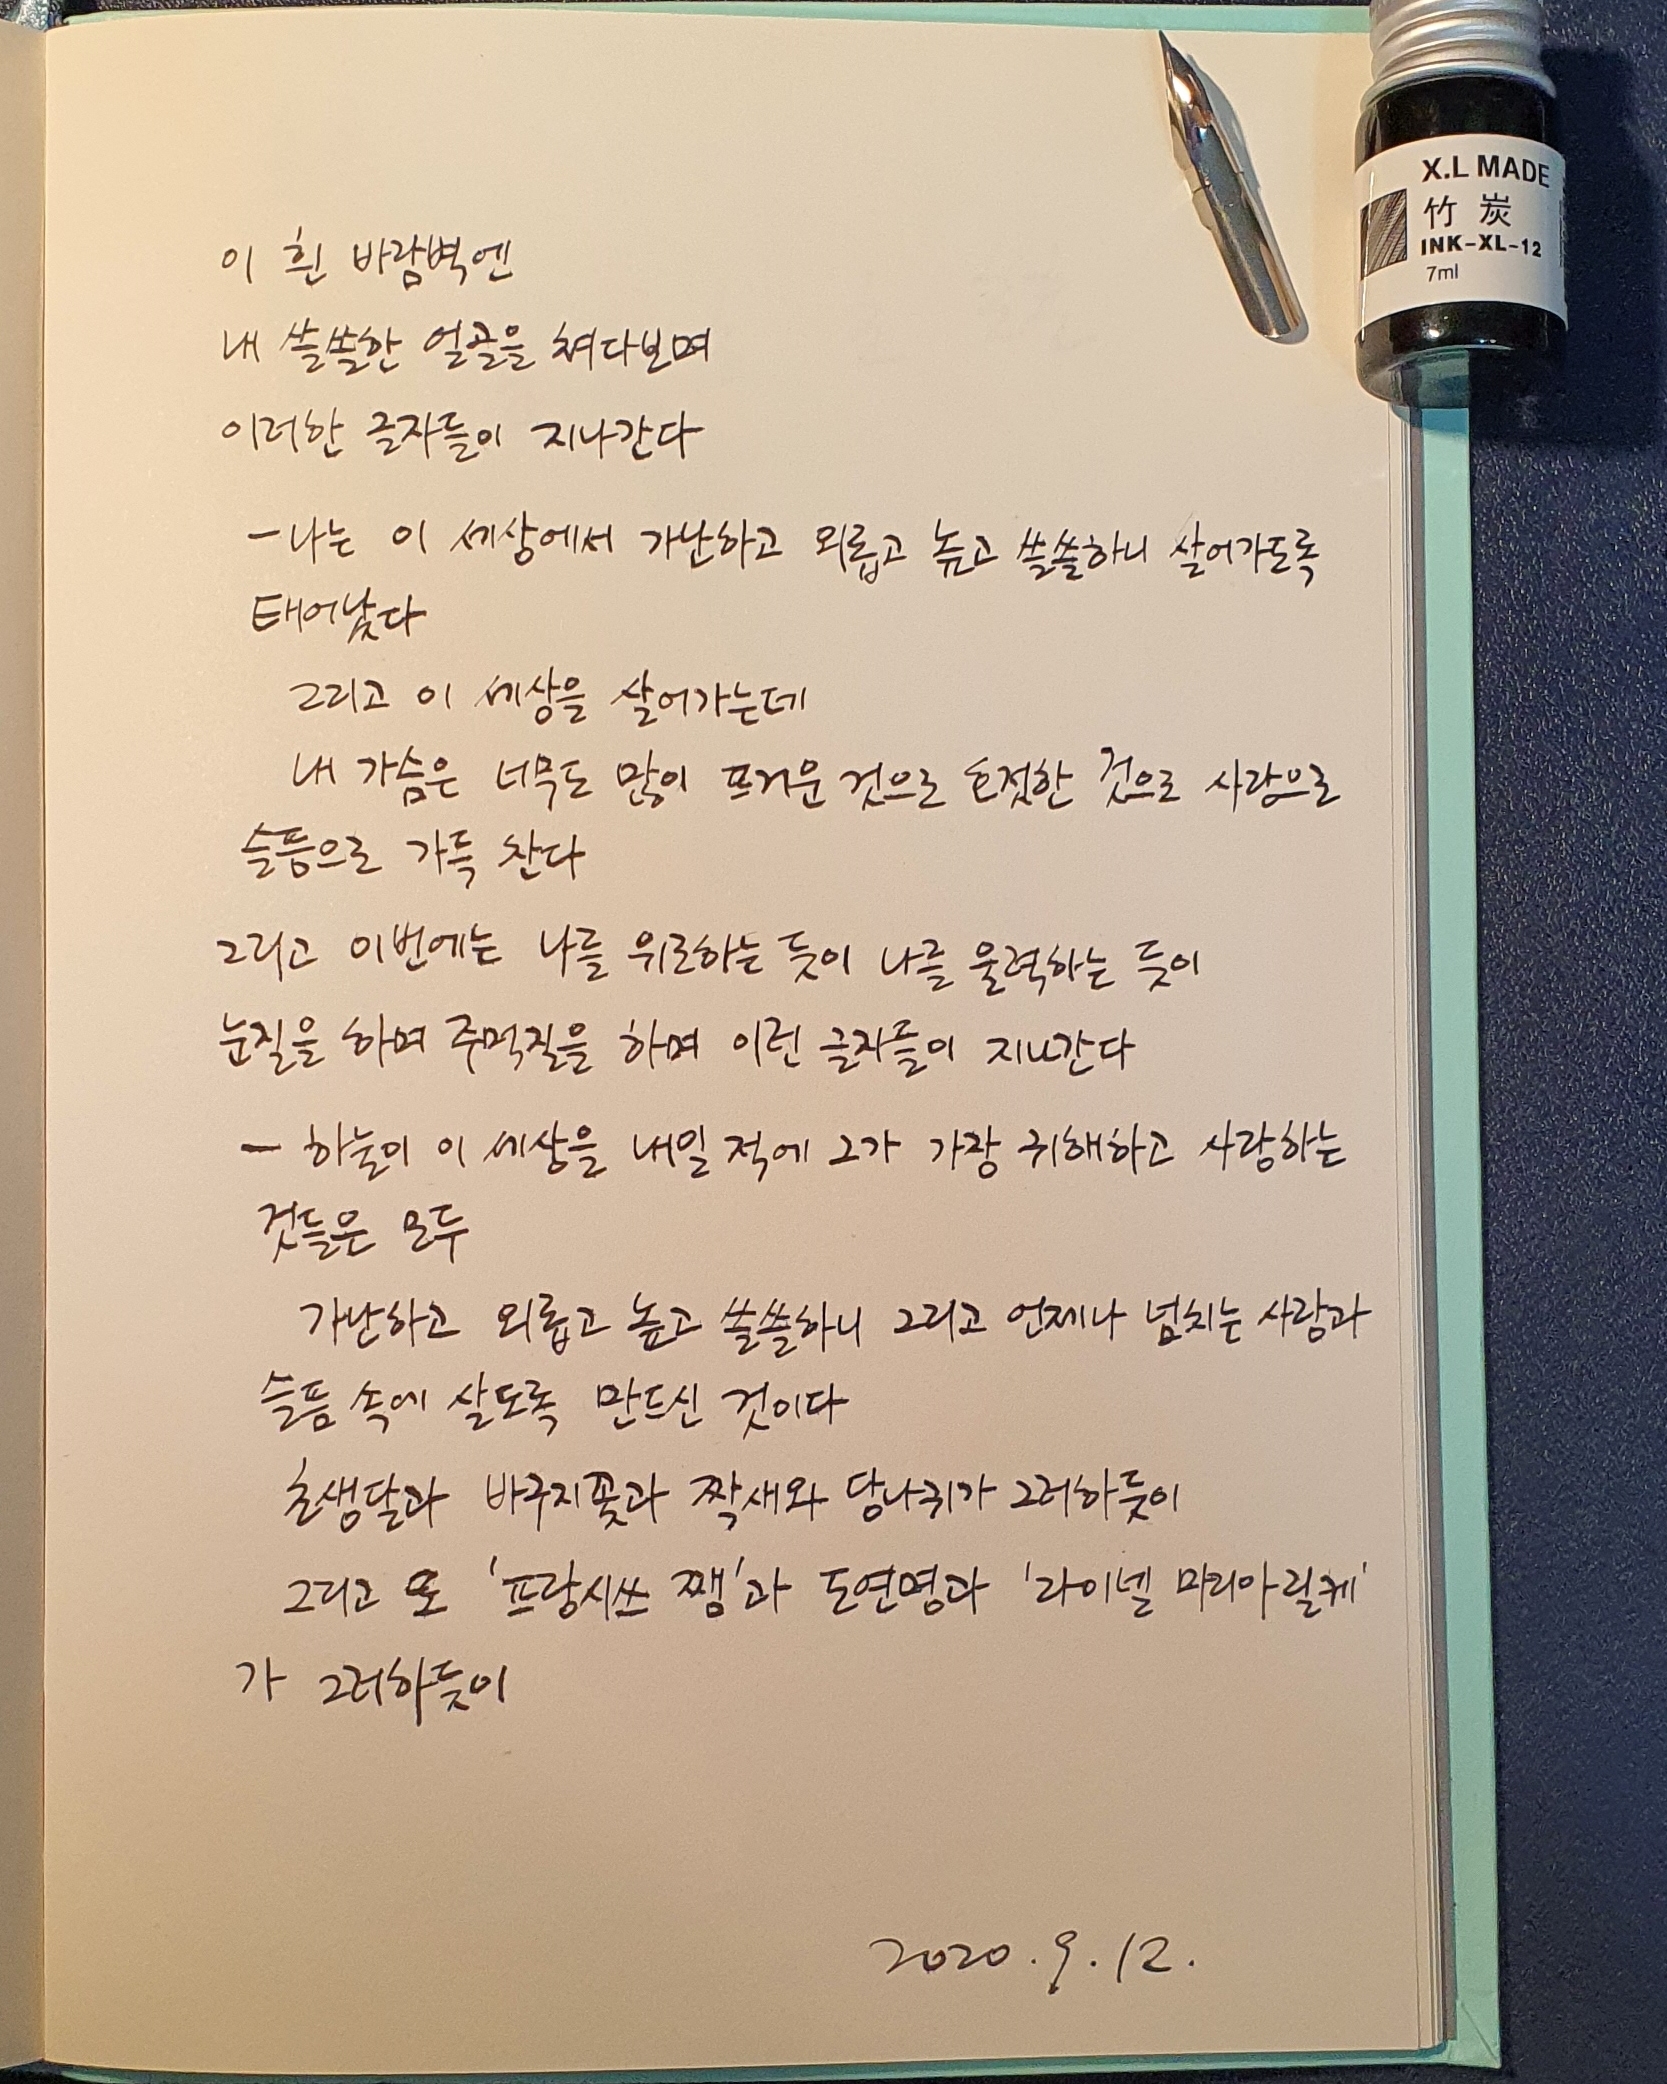 이 흰 바람벽엔
내 쓸쓸한 얼골을 쳐다보며
이러한 글자들이 지나간다
-나는 이 세상에서 가난하고 외롭고 높고 쓸쓸하니 살어가도록
태어났다
그리고 이 세상을 살어가는데
내 가슴은 너무도 많이 뜨거운 것으로 호젓한 것으로 사랑으로
슬픔으로 가득 찬다
그리고 이번에는 나를 위로하는 듯이 나를 울력하는 듯이
눈질을 하며 주먹질을 하며 이런 글자들이 지나간다
- 하눌이 이 세상을 내일 적에 그가 가장 귀해하고 사랑하는
것들은 모두
가난하고 외롭고 높고 쓸쓸하니 그리고 언제나 넘치는 사랑과
슬픔 속에 살도록 만드신 것이다
초생달과 바구지꽃과 짝새와 당나귀가 그러하듯이
그리고 또 '프랑시쓰 쨈'과 도연명과 '라이넬 마리아 릴케'
가 그러하듯이
2020.9.12.
X.L MADE
竹炭
INK-XL-12
7ml